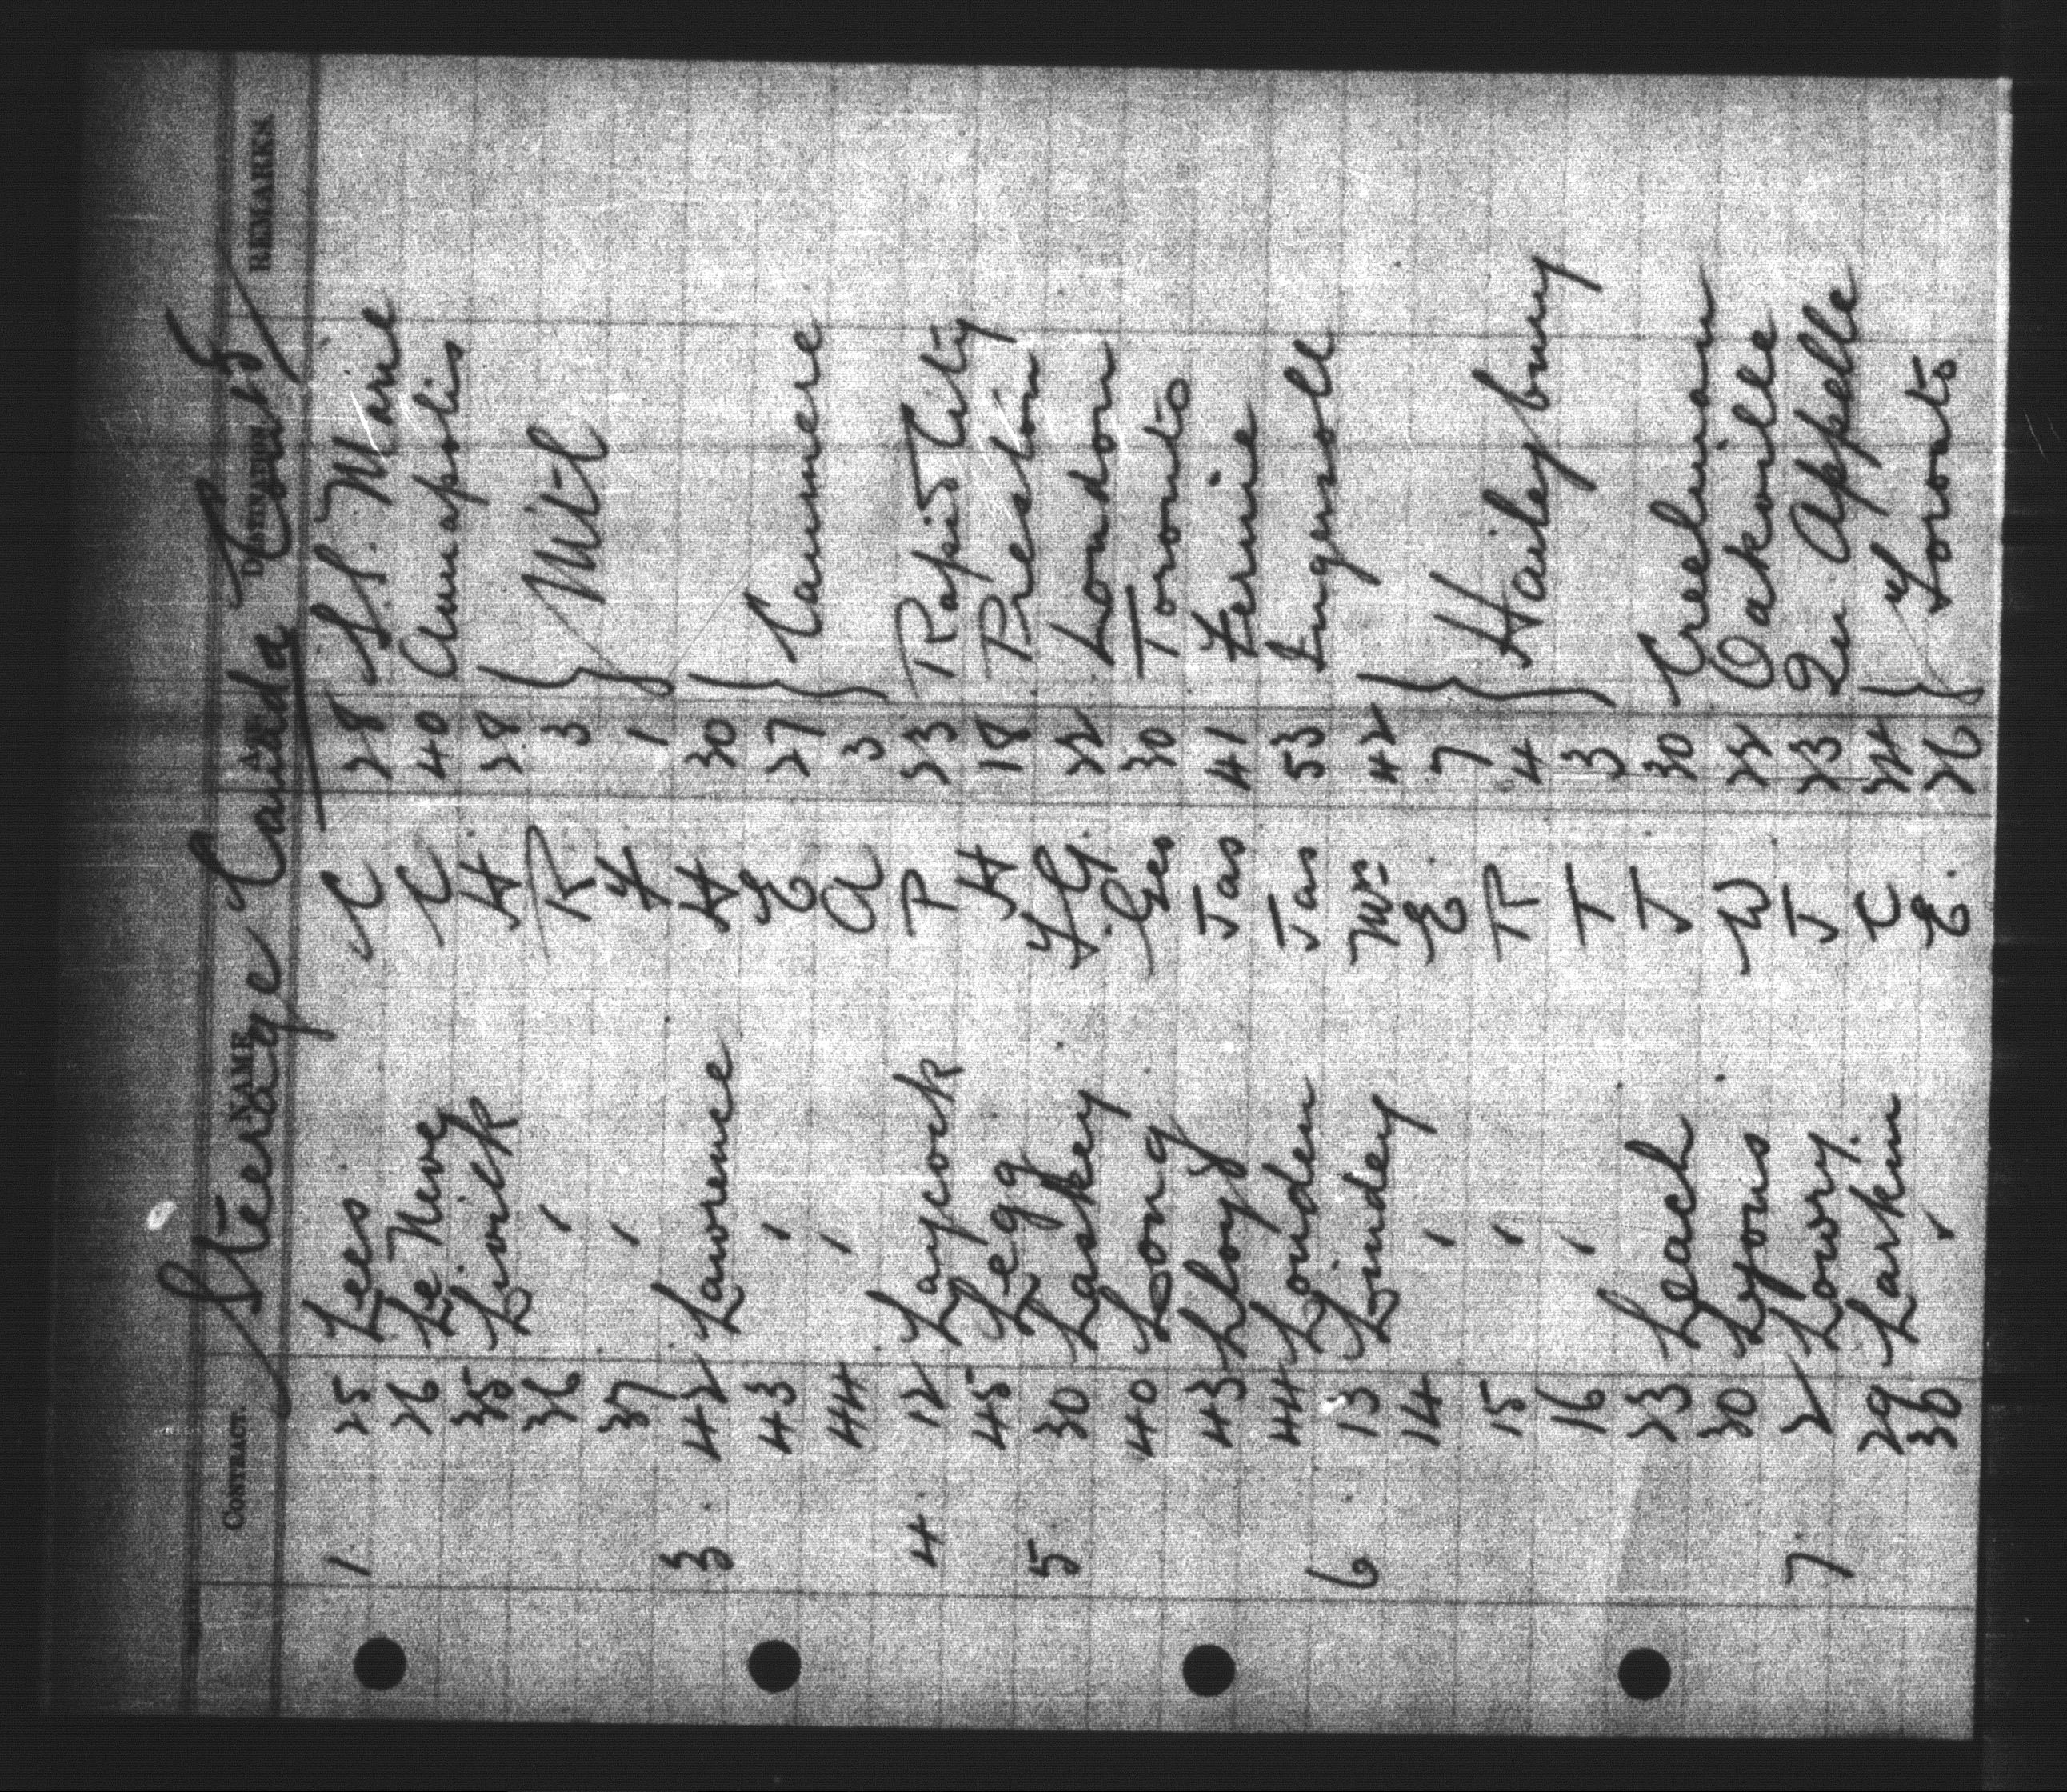 Steerage Canada
CONTRACT. NAME AGE DESTINATION REMARKS.
1 25 Lees C 28 S. S. Marie
26 Le Neve C 40 Annapolis
35 Livick H 28
36 " R 3 Mtl
37 " F 1
3 42 Lawrence H 30
43 " E 27 Canmore
44 " A 3
4 12 Laycock P 23 Rapid City
45 Legg H 18 Preston
5 30 Laskey F.G. 22 London
40 Long Geo 30 Toronto
43 Lloyd Jas 41 Fernie
44 Louden Jas 53 Ingersoll
6 13 Lindley Mrs 42
14 " E. 7
15 " R 4 Haileybury
16 " T 3
23 Leach J 30 Creelman
30 Lyons W 22 Oakville
7 2 Lowry J 23 Qu Appelle
29 Larkin C 24
30 " E. 26 Toronto